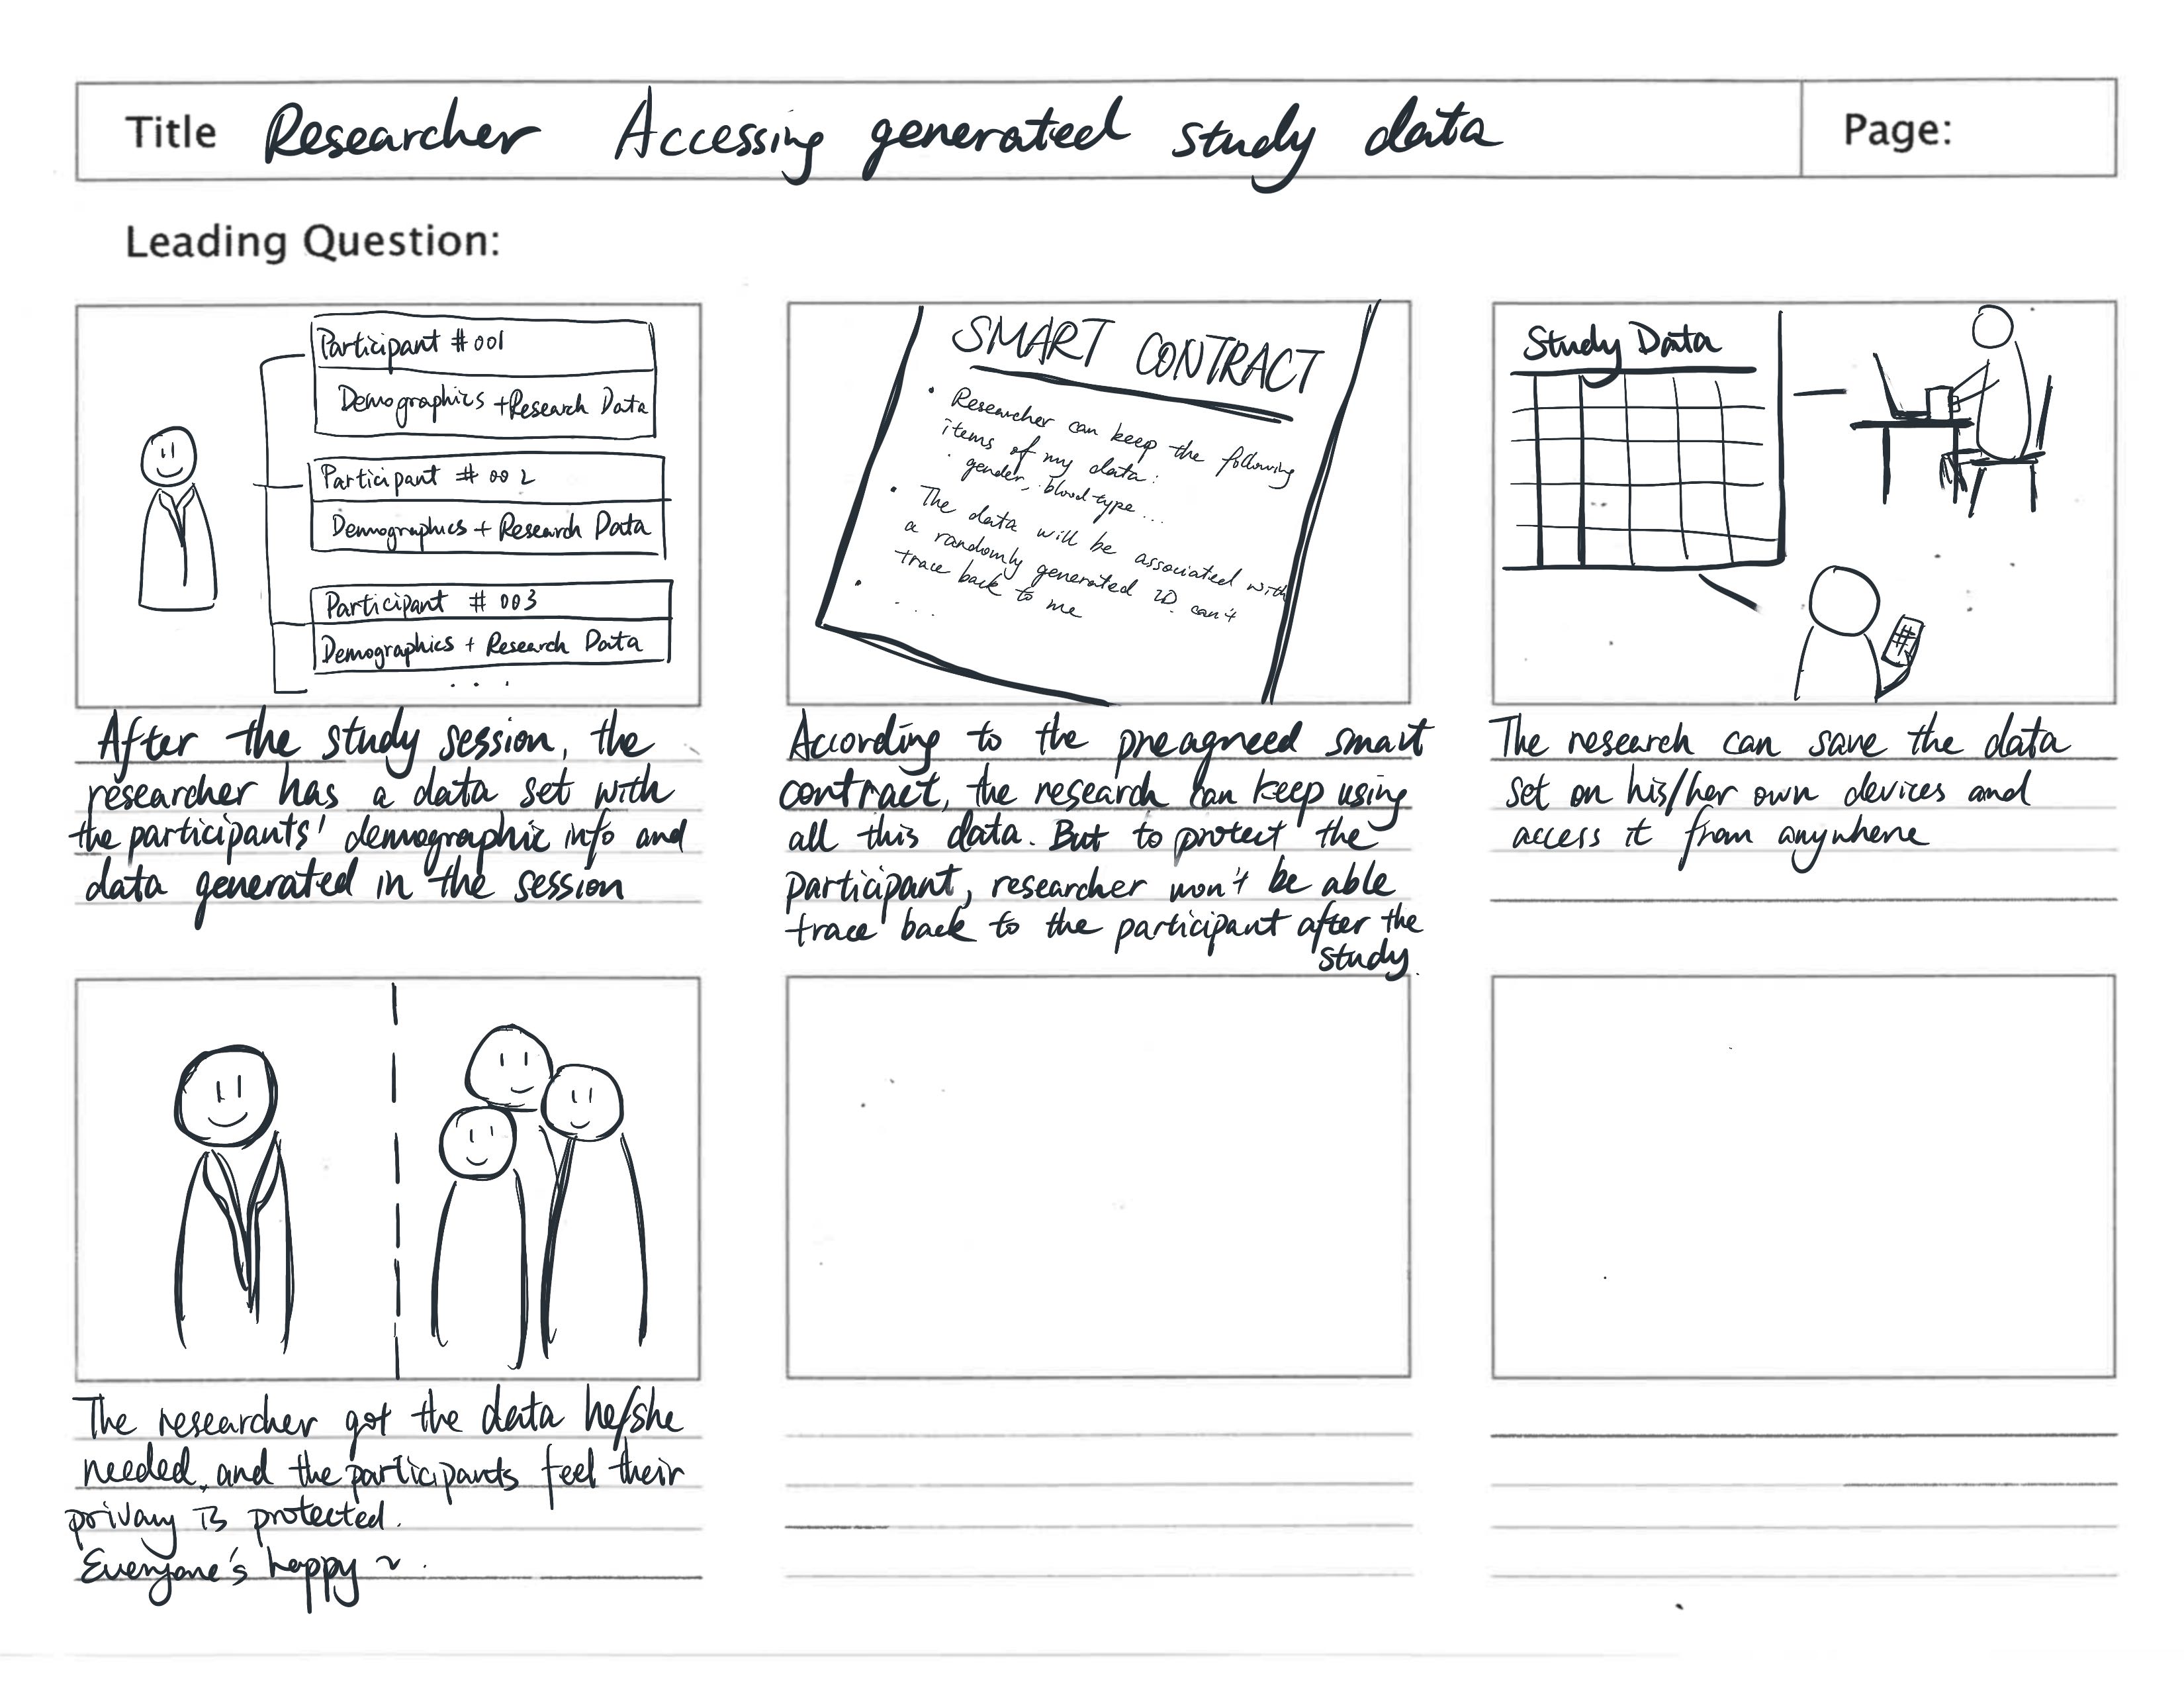 Title Researcher Accessing generated study data
Page:
Leading Question:
Participant #001
Demographics + Research Data
Participant # 002
Demographics + Research Data
Participant # 003
Demographics + Research Data
. . .
After the study session, the
researcher has a data set with
the participants' demographic info and
data generated in the session
SMART CONTRACT
• Researcher can keep the following
items of my data:
· gender, blood type...
• The data will be associated with
a randomly generated ID can't
trace back to me
• . . .
According to the preagreed smart
contract, the research can keep using
all this data. But to protect the
participant, researcher won't be able
trace back to the participant after the
study.
Study Data
The research can save the data
set on his/her own devices and
access it from anywhere
The researcher got the data he/she
needed, and the participants feel their
privacy is protected.
Everyone's happy ~.